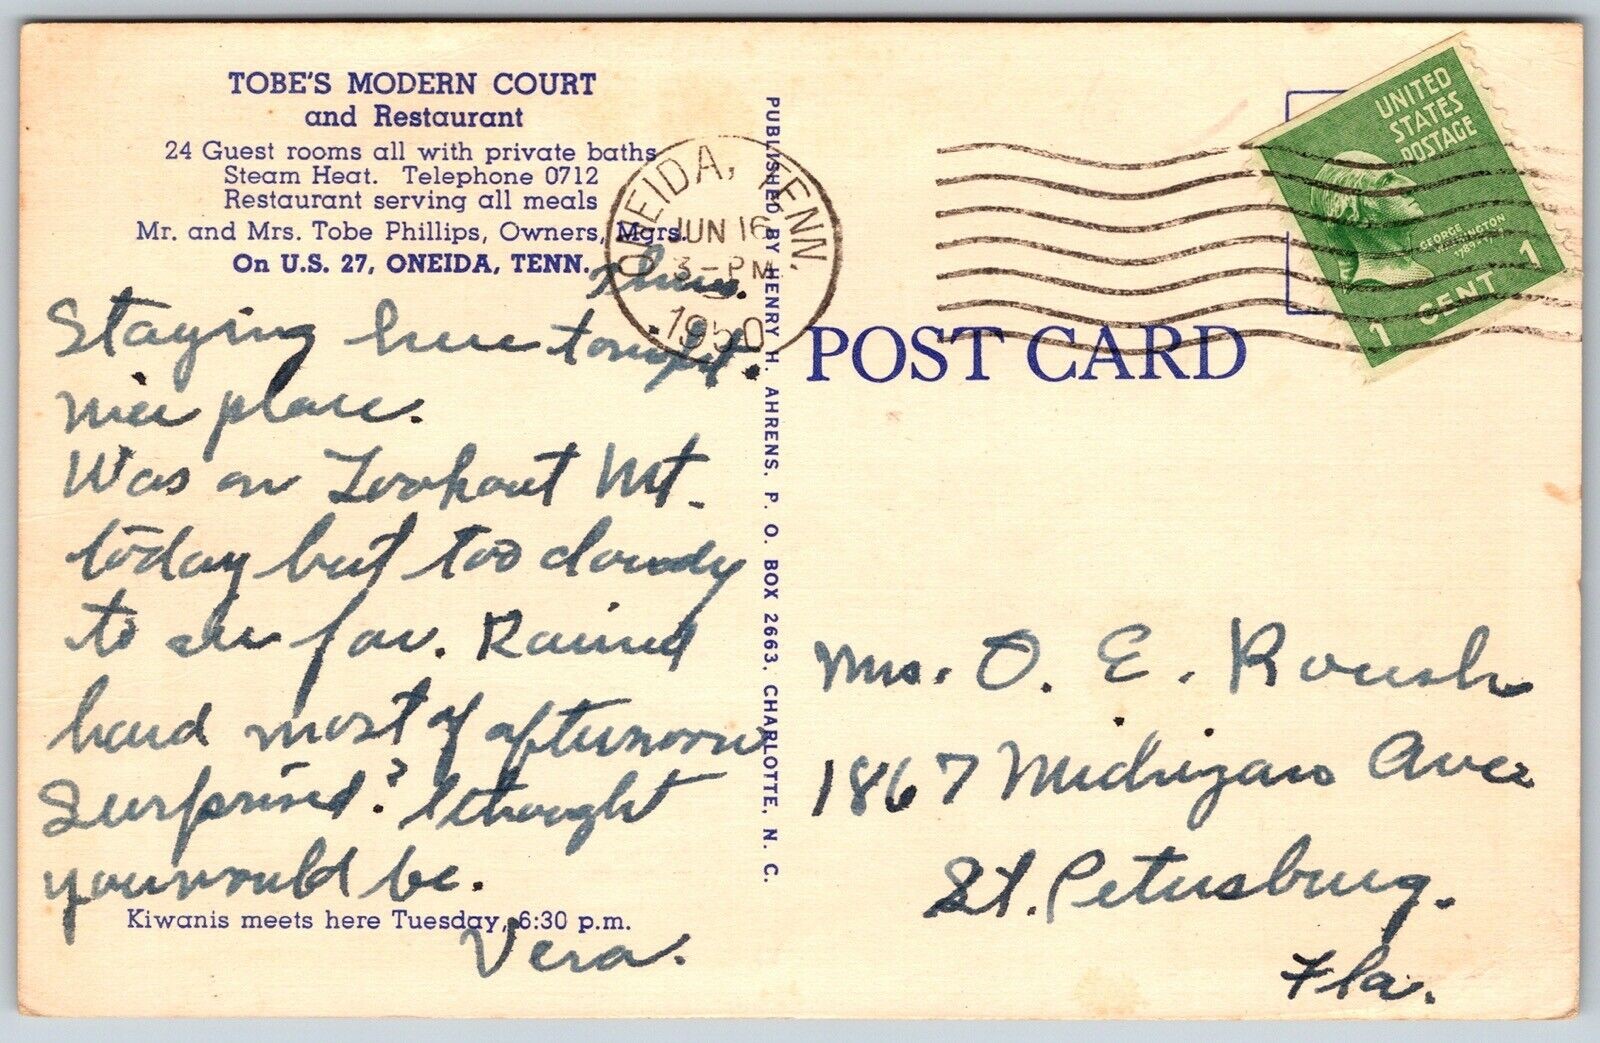 TOBE'S MODERN COURT
and Restaurant
24 Guest rooms all with private baths
Steam Heat. Telephone 0712
Restaurant serving all meals
Mr. and Mrs. Tobe Phillips, Owners, Mgrs.
On U.S. 27, ONEIDA, TENN.
Thurs.
Staying here tonight.
nice place.
Was on Lookout Mt.
today but too cloudy
to see far. Rained
hard most of afternoon
Surprised? I thought
you would be.
Kiwanis meets here Tuesday, 6:30 p.m.
Vera.
PUBLISHED BY HENRY H. AHRENS, P. O. BOX 2663, CHARLOTTE, N. C.
ONEIDA, TENN.
JUN 16
3-PM
1950
POST CARD
UNITED
STATES
POSTAGE
GEORGE
WASHINGTON
1 CENT 1
Mrs. O. E. Roush
1867 Michigan Ave
St. Petersburg.
Fla.